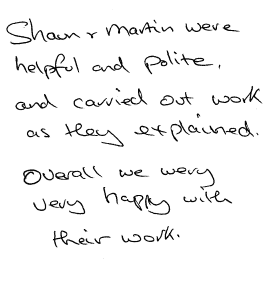 Shaun + Martin were
helpful and polite,
and carried out work
as they explained.
Overall we wery
very happy with
their work.